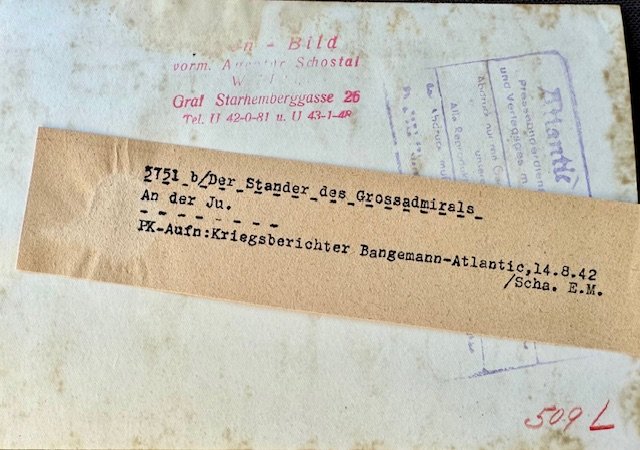 n - Bild
vorm. Agentur Schostal
W
Graf Starhemberggasse 26
Tel. U 42-0-81 u. U 43-1-48
Atlantic
und Verlagsges. m.
Abdruck nur mit
Alle
5751 b/Der Stander des Grossadmirals
An der Ju.
PK-Aufn:Kriegsberichter Bangemann-Atlantic,14.8.42
/Scha. E.M.
509 L